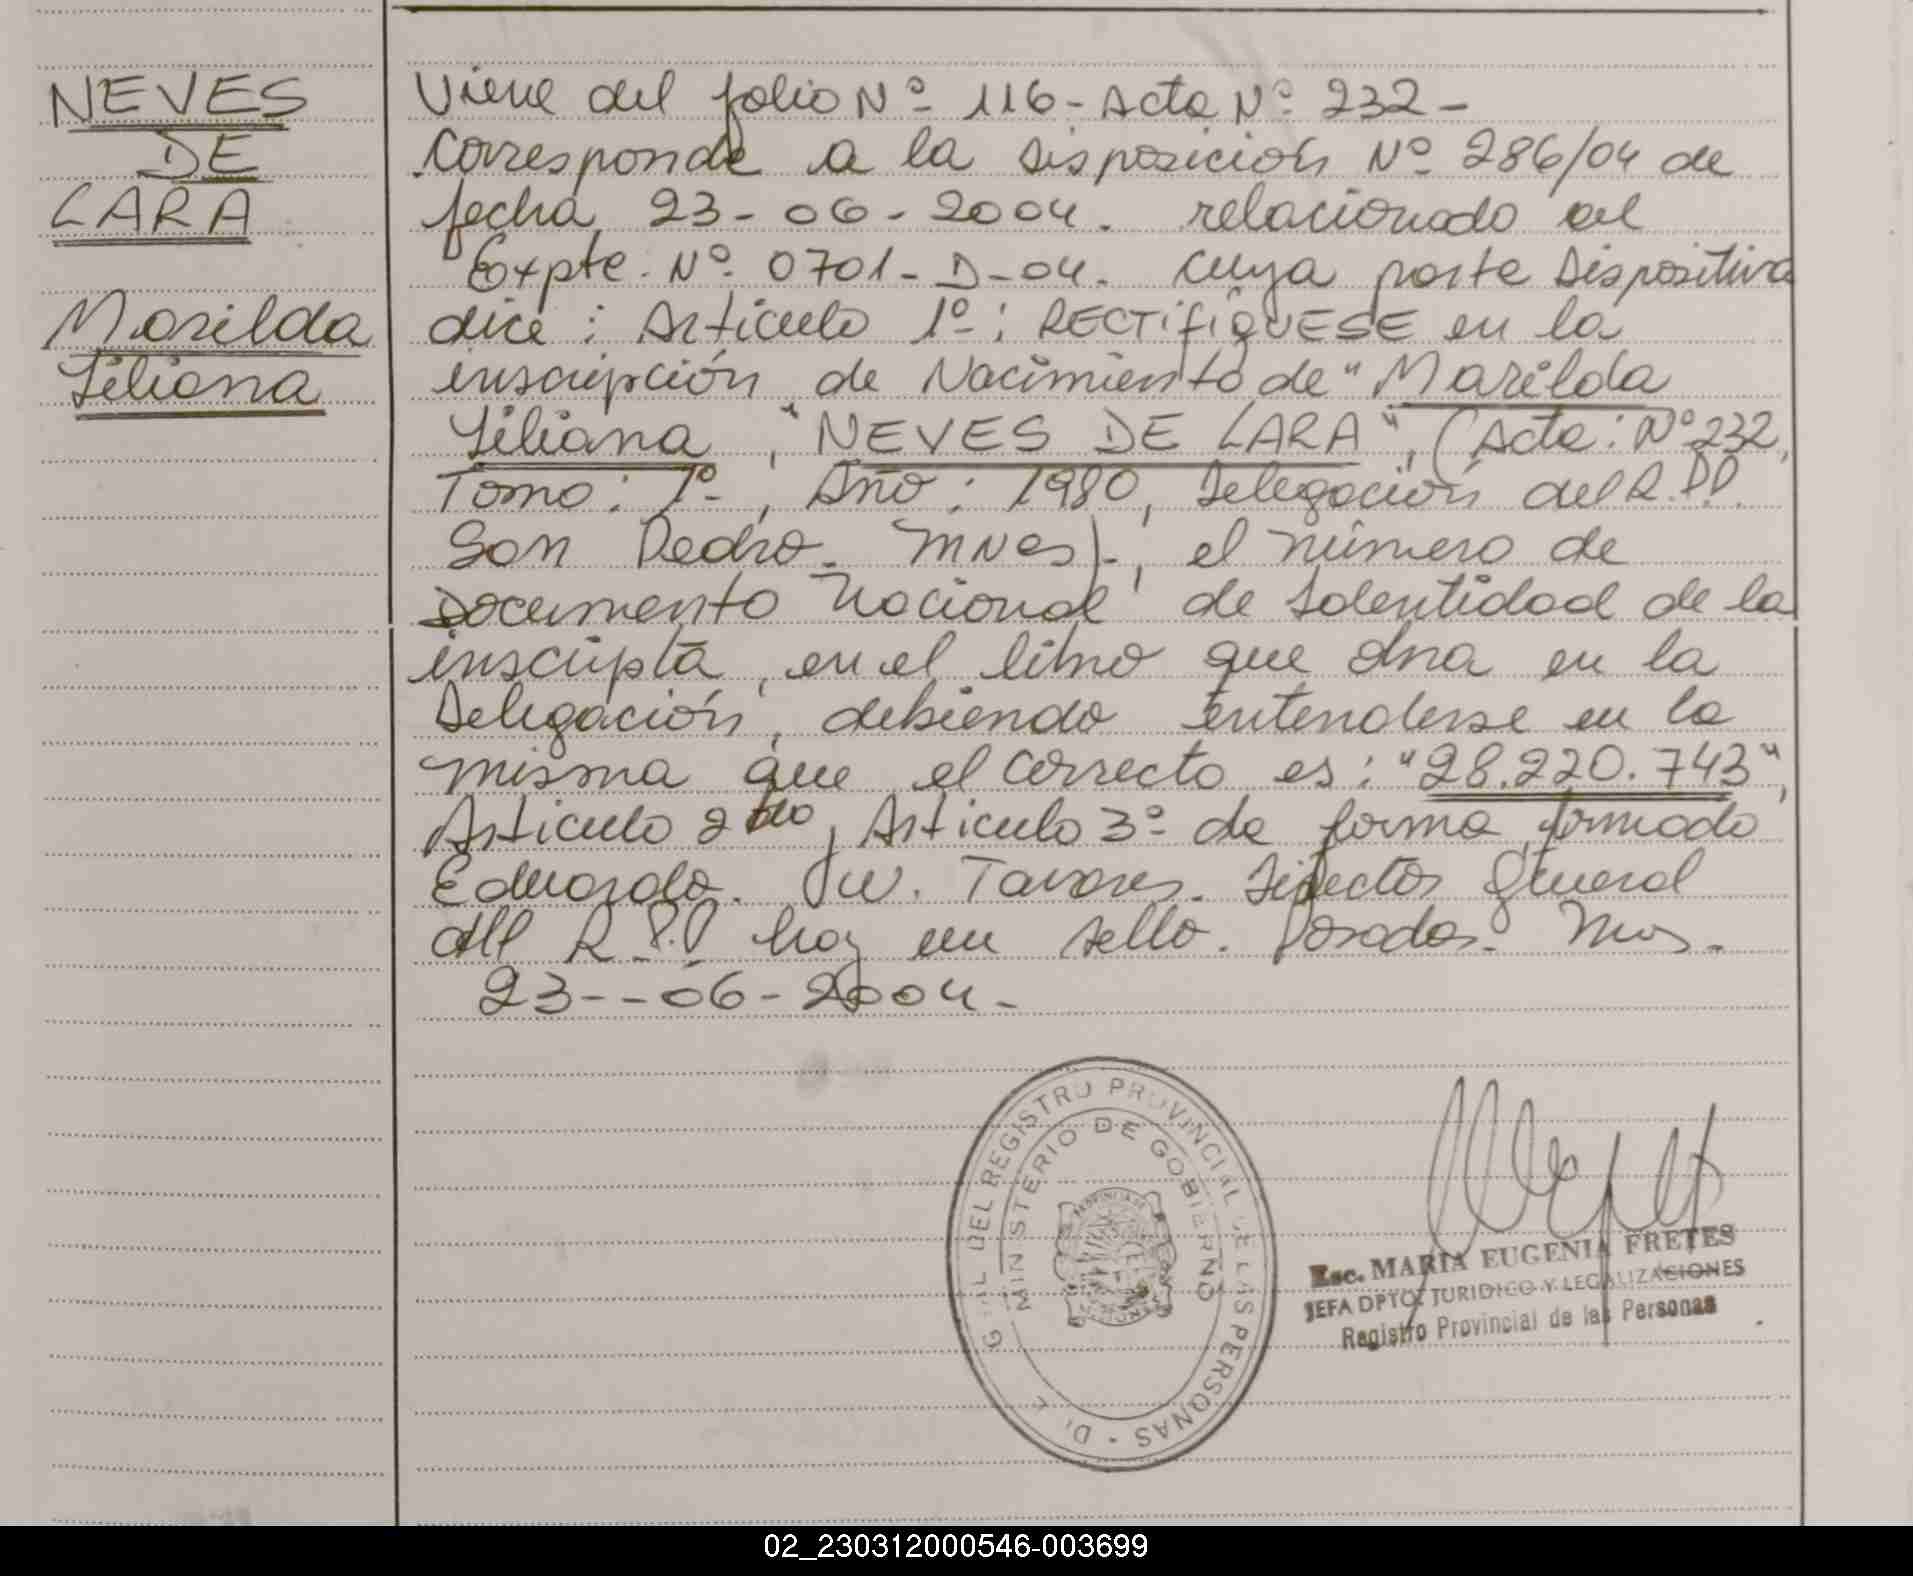 NEVES
DE
LARA
Marilda
Liliana
Viene del folio Nº 116 - Acta Nº 232 -
Corresponde a la Disposición Nº 286/04 de
fecha 23-06-2004. relacionado al
Expte. Nº 0701-D-04. cuya parte Dispositiva
dice: Artículo 1º: RECTIFIQUESE en la
inscripción de Nacimiento de "Marilda
Liliana, "NEVES DE LARA", (Acta: Nº 232,
Tomo: 1º, Año: 1980, Delegación del R.P.P.
San Pedro - Mnes)-, el número de
Documento Nacional de Identidad de la
inscripta, en el libro que obra en la
Delegación, debiendo entenderse en la
misma que el correcto es: "28.220.743",
Artículo 2do, Artículo 3º de forma, firmado
Eduardo. W. Tavares. Director General
del R.P.P hay un sello. Posadas. Mns.
23--06-2004-
GRAL DEL REGISTRO PROVINCIAL DE LAS PERSONAS
MINISTERIO DE GOBIERNO
PROVINCIA DE
Esc. MARIA EUGENIA FRETES
JEFA DPTO. JURIDICO Y LEGALIZACIONES
Registro Provincial de las Personas
02_230312000546-003699